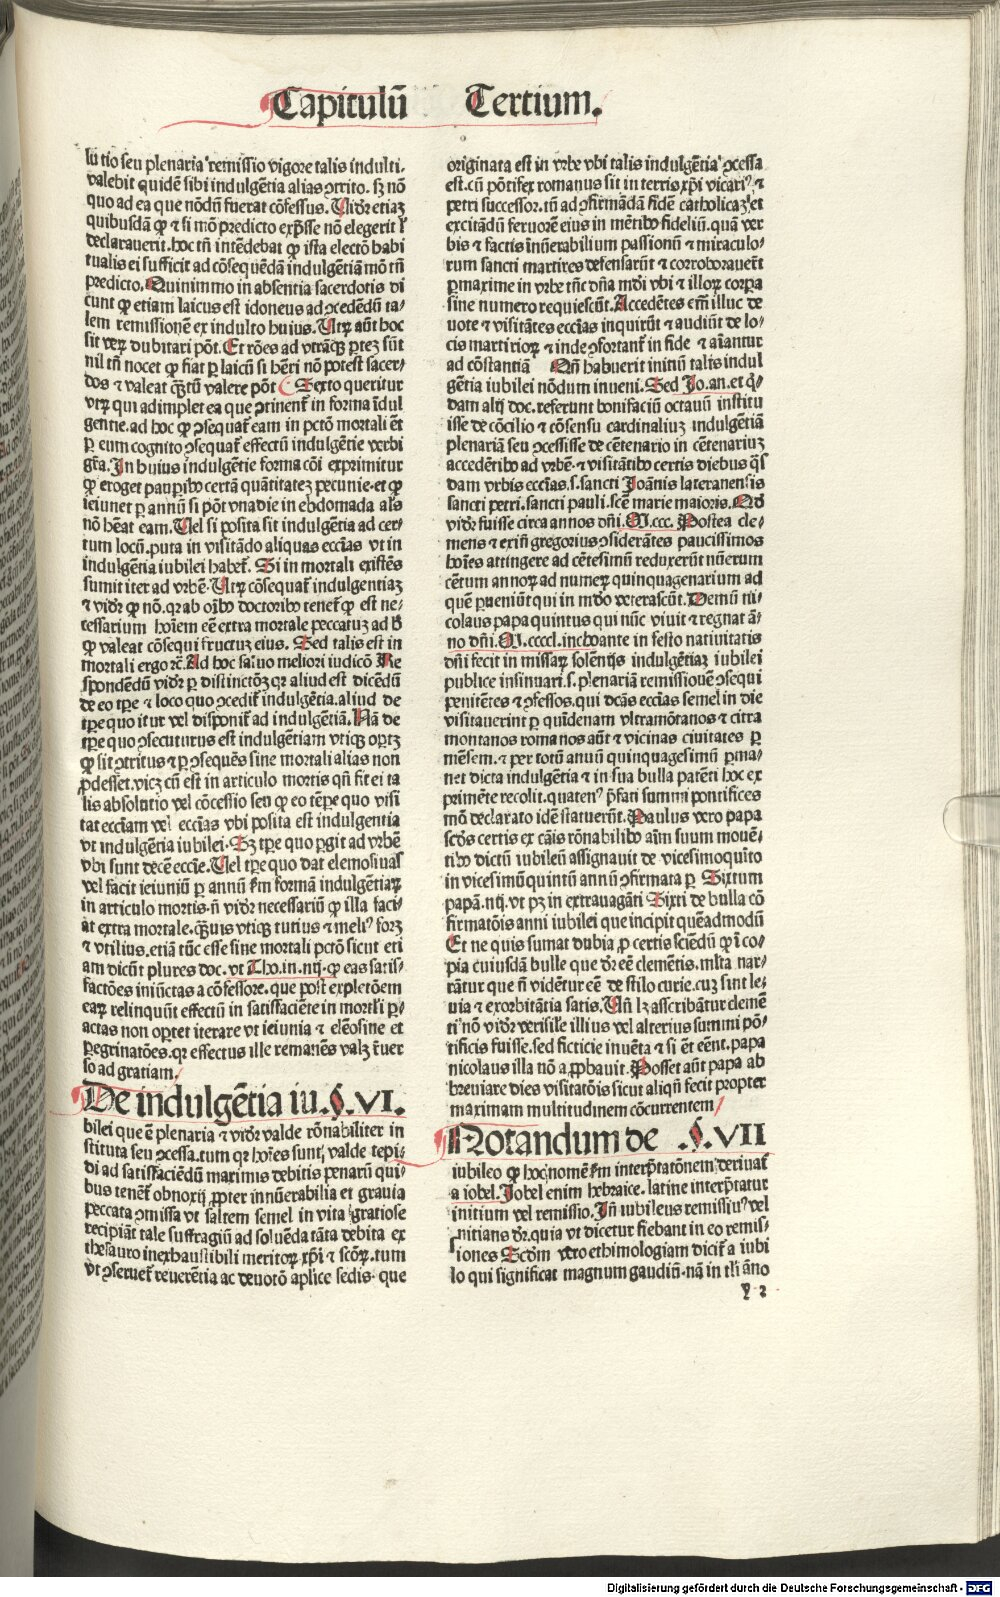 Capitulū Tertium.
lutio seu plenaria remissio vigore talis indulti.
valebit quidē sibi indulgētia alias ꝯtrito. sꝫ nō
quo ad ea que nōdū fuerat cōfessus. Uidr̄ etiaꝫ
quibusdā ꝙ ⁊ si mō predicto exp̄sse nō elegerit
declarauerit. hoc tn̄ intēdebat ꝙ ista electō habi
tualis ei sufficit ad cōsequēdā indulgētiā mō tn̄
predicto. Quinimmo in absentia sacerdotis di
cunt ꝙ etiam laicus est idoneus ad ꝯcedēdū ta-
lem remissionē ex indulto huius. Utꝝ aūt hoc
sit veꝝ dubitari pōt. Et rōes ad vtrāqꝫ ꝑteꝫ sūt
nil tn̄ nocet ꝙ fiat ꝑ laicū si hēri nō potest sacer-
dos ⁊ valeat qꝫtū valere pōt Sexto queritur
vtꝝ qui adimplet ea que ꝯtinent̄ in forma īdul
gentie. ad hoc ꝙ ꝯsequat̄ eam in pctō mortali ēt
ꝑ eum cognito ꝯsequat̄ effectū indulgētie verbi
gr̄a. In huius indulgētie forma cōi exprimitur
ꝙ eroget pauꝑibꝰ certā quātitateꝫ pecunie. et ꝙ
ieiunet ꝑ annū si pōt vna die in ebdomada als̄
nō hēat eam. Uel si posita sit indulgētia ad cer-
tum locū. puta in visitādo aliquas eccl̄ias vt in
indulgētia iubilei habet̄. Si in mortali existēs
sumit iter ad vrbē. Utꝝ cōsequat̄ indulgentiaꝫ
⁊ vidr̄ ꝙ nō. qꝛ ab oībꝰ doctoribꝰ tenet̄ ꝙ est ne-
cessarium hoīem eē extra mortale peccatuꝫ ad
ꝙ valeat cōsequi fructus eius. Sed talis est in
mortali ergo ꝛc̄. Ad hoc saluo meliori iudicō Re
spondēdū vidr̄ ꝑ distinctōꝫ qꝛ aliud est dicēdū
de eo tꝑe ⁊ loco quo ꝯcedit̄ indulgētia. aliud de
tꝑe quo itur vel disponit̄ ad indulgētiā. Nā de
tꝑe quo ꝯsecuturus est indulgētiam vtiqꝫ oꝑtꝫ
ꝙ sit ꝯtritus ⁊ ꝑ ꝯsequēs sine mortali alias non
ꝓdesset. vicꝫ cū est in articulo mortis qn̄ fit ei ta
lis absolutio vel cōcessio seu ꝙ eo tēꝑe quo visi
tat eccl̄iam vel eccl̄ias vbi posita est indulgentia
vt indulgētia iubilei. Sꝫ tꝑe quo ꝑgit ad vrbē
vbi sunt decē eccl̄ie. Uel tꝑe quo dat elemosinas
vel facit ieiuniū ꝑ annū ẜm formā indulgētiaꝝ
in articulo mortis. nō vidr̄ necessariū ꝙ illa faci-
at extra mortale. qꝫuis vtiqꝫ tutius ⁊ meliꝰ foꝝ
⁊ vtilius. etiā tūc esse sine mortali pctō sicut eti
am dicūt plures doc. vt Tho. in. iiij. ꝙ eas satis-
factōes iniūctas a cōfessore. que post expletōem
eaꝝ relinquūt effectū in satisfaciēte in mortli ꝑ-
actas non oꝑtet iterare vt ieiunia ⁊ elēosine et
ꝑegrinatōes. qꝛ effectus ille remanēs valꝫ r̄uer
so ad gratiam.
De indulgētia iu. §. VI.
bilei que ē plenaria ⁊ vidr̄ valde rōnabiliter in
stituta seu ꝯcessa. tum qꝛ hoīes sunt valde tepi-
di ad satisfaciēdū maximis debitis penarū qui-
bus tenēt̄ obnoxij ꝓpter innūerabilia et grauia
peccata ꝯmissa vt saltem semel in vita gratiose
recipiāt tale suffragiū ad soluēda tāta debita ex
thesauro inexhaustibili meritoꝝ xp̄i ⁊ scōꝝ. tum
vt ꝯseruet̄ reuerētia ac deuotō aplice sedis. que
originata est in vrbe vbi talis indulgētia ꝯcessa
est. cū pōtifex romanus sit in terris xp̄i vicariꝰ ⁊
petri successor. tū ad ꝯfirmādā fidē catholicaꝫ et
excitādū feruorē eius in mētibꝰ fideliū. quā ver
bis ⁊ factis īnūerabilium passionū ⁊ miraculo-
rum sancti martires defensarūt ⁊ corroborauerūt
ꝑmaxime in vrbe tūc dn̄a mūdi vbi ⁊ illoꝝ corꝑa
sine numero requiescūt. Accedētes em̄ illuc de
uote ⁊ visitātes eccl̄ias inquirūt ⁊ audiūt de lo-
cis martirioꝝ ⁊ inde ꝯfortant̄ in fide ⁊ aīantur
ad cōstantiā Qn̄ habuerit initiū talis indul
gētia iubilei nōdum inueni. Sed Jo. an. et q̄-
dam alij doc. referunt bonifaciū octauū institu
isse de cōcilio ⁊ cōsensu cardinaliuꝫ indulgētiā
plenariā seu ꝯcessisse de cētenario in cētenariuꝫ
accedētibꝰ ad vrbē. ⁊ visitātibꝰ certis diebus q̄s
dam vrbis eccl̄ias. s. sancti Joānis lateranensis
sancti petri. sancti pauli. scē marie maioris. Qd̄
vidr̄ fuisse circa annos dn̄i. M. ccc. Postea cle-
mens ⁊ exin̄ gregorius ꝯsiderātes paucissimos
hoīes attingere ad cētesimū reduxerūt nūerum
cētum annoꝝ ad numeꝝ quinquagenarium ad
quē ꝑueniūt qui in mūdo veterascūt. Demū ni-
colaus papa quintus qui nūc viuit ⁊ regnat ā-
no dn̄i. M. ccccl. inchoante in festo natiuitatis
dn̄i fecit in missaꝝ solēnijs indulgētiaꝫ iubilei
publice insinuari. s. plenariā remissionē ꝯsequi
penitētes ⁊ ꝯfessos. qui dcās eccl̄ias semel in die
visitauerint ꝑ quīdenam vltramōtanos ⁊ citra
montanos romanos aūt ⁊ vicinas ciuitates ꝑ
mēsem. ⁊ per totū anuū quinquagesimū ꝑma-
net dicta indulgētia ⁊ in sua bulla patēti hoc ex
primēte recolit. quatenꝰ p̄fati summi pontifices
mō declarato idē statuerūt. Paulus vero papa
scds certis ex cāis rōnabilibꝰ aīm suum mouē-
tibꝰ dictū iubileū assignauit de vicesimoquīto
in vicesimūquintū annū ꝯfirmata ꝑ Sixtum
papā. iiij. vt pꝫ in extrauagāti Sixti de bulla cō
firmatōis anni iubilei que incipit quēadmodū
Et ne quis sumat dubia ꝓ certis sciēdū ꝙ ī co-
pia cuiusdā bulle que dr̄ eē clemētis. mlta nar-
rātur que n̄ vidētur eē de stilo curie. cuꝫ sint le-
uia ⁊ exorbitātia satis. Un̄ lꝫ asscribātur clemē
ti nō vidr̄ verisile illius vel alterius summi pō-
tificis fuisse. sed ficticie inuēta ⁊ si ēt eēnt. papa
nicolaus illa nō aꝓbauit. Posset aūt papa ab
breuiare dies visitatōis sicut aliqn̄ fecit propter
maximam multitudinem cōcurrentem
Notandum de §. VII
iubileo ꝙ hoc nomē ẜm interp̄tatōnem deriuat̄
a iobel. Jobel enim hebraice. latine interp̄tatur
initium vel remissio. In iubileus remissiuꝰ vel
initians dr̄. quia vt dicetur fiebant in eo remis-
siones Scdm vero ethimologiam dicit̄ a iubi
lo qui significat magnum gaudiū. nā in tli āno
y 2
Digitalisierung gefördert durch die Deutsche Forschungsgemeinschaft - DFG